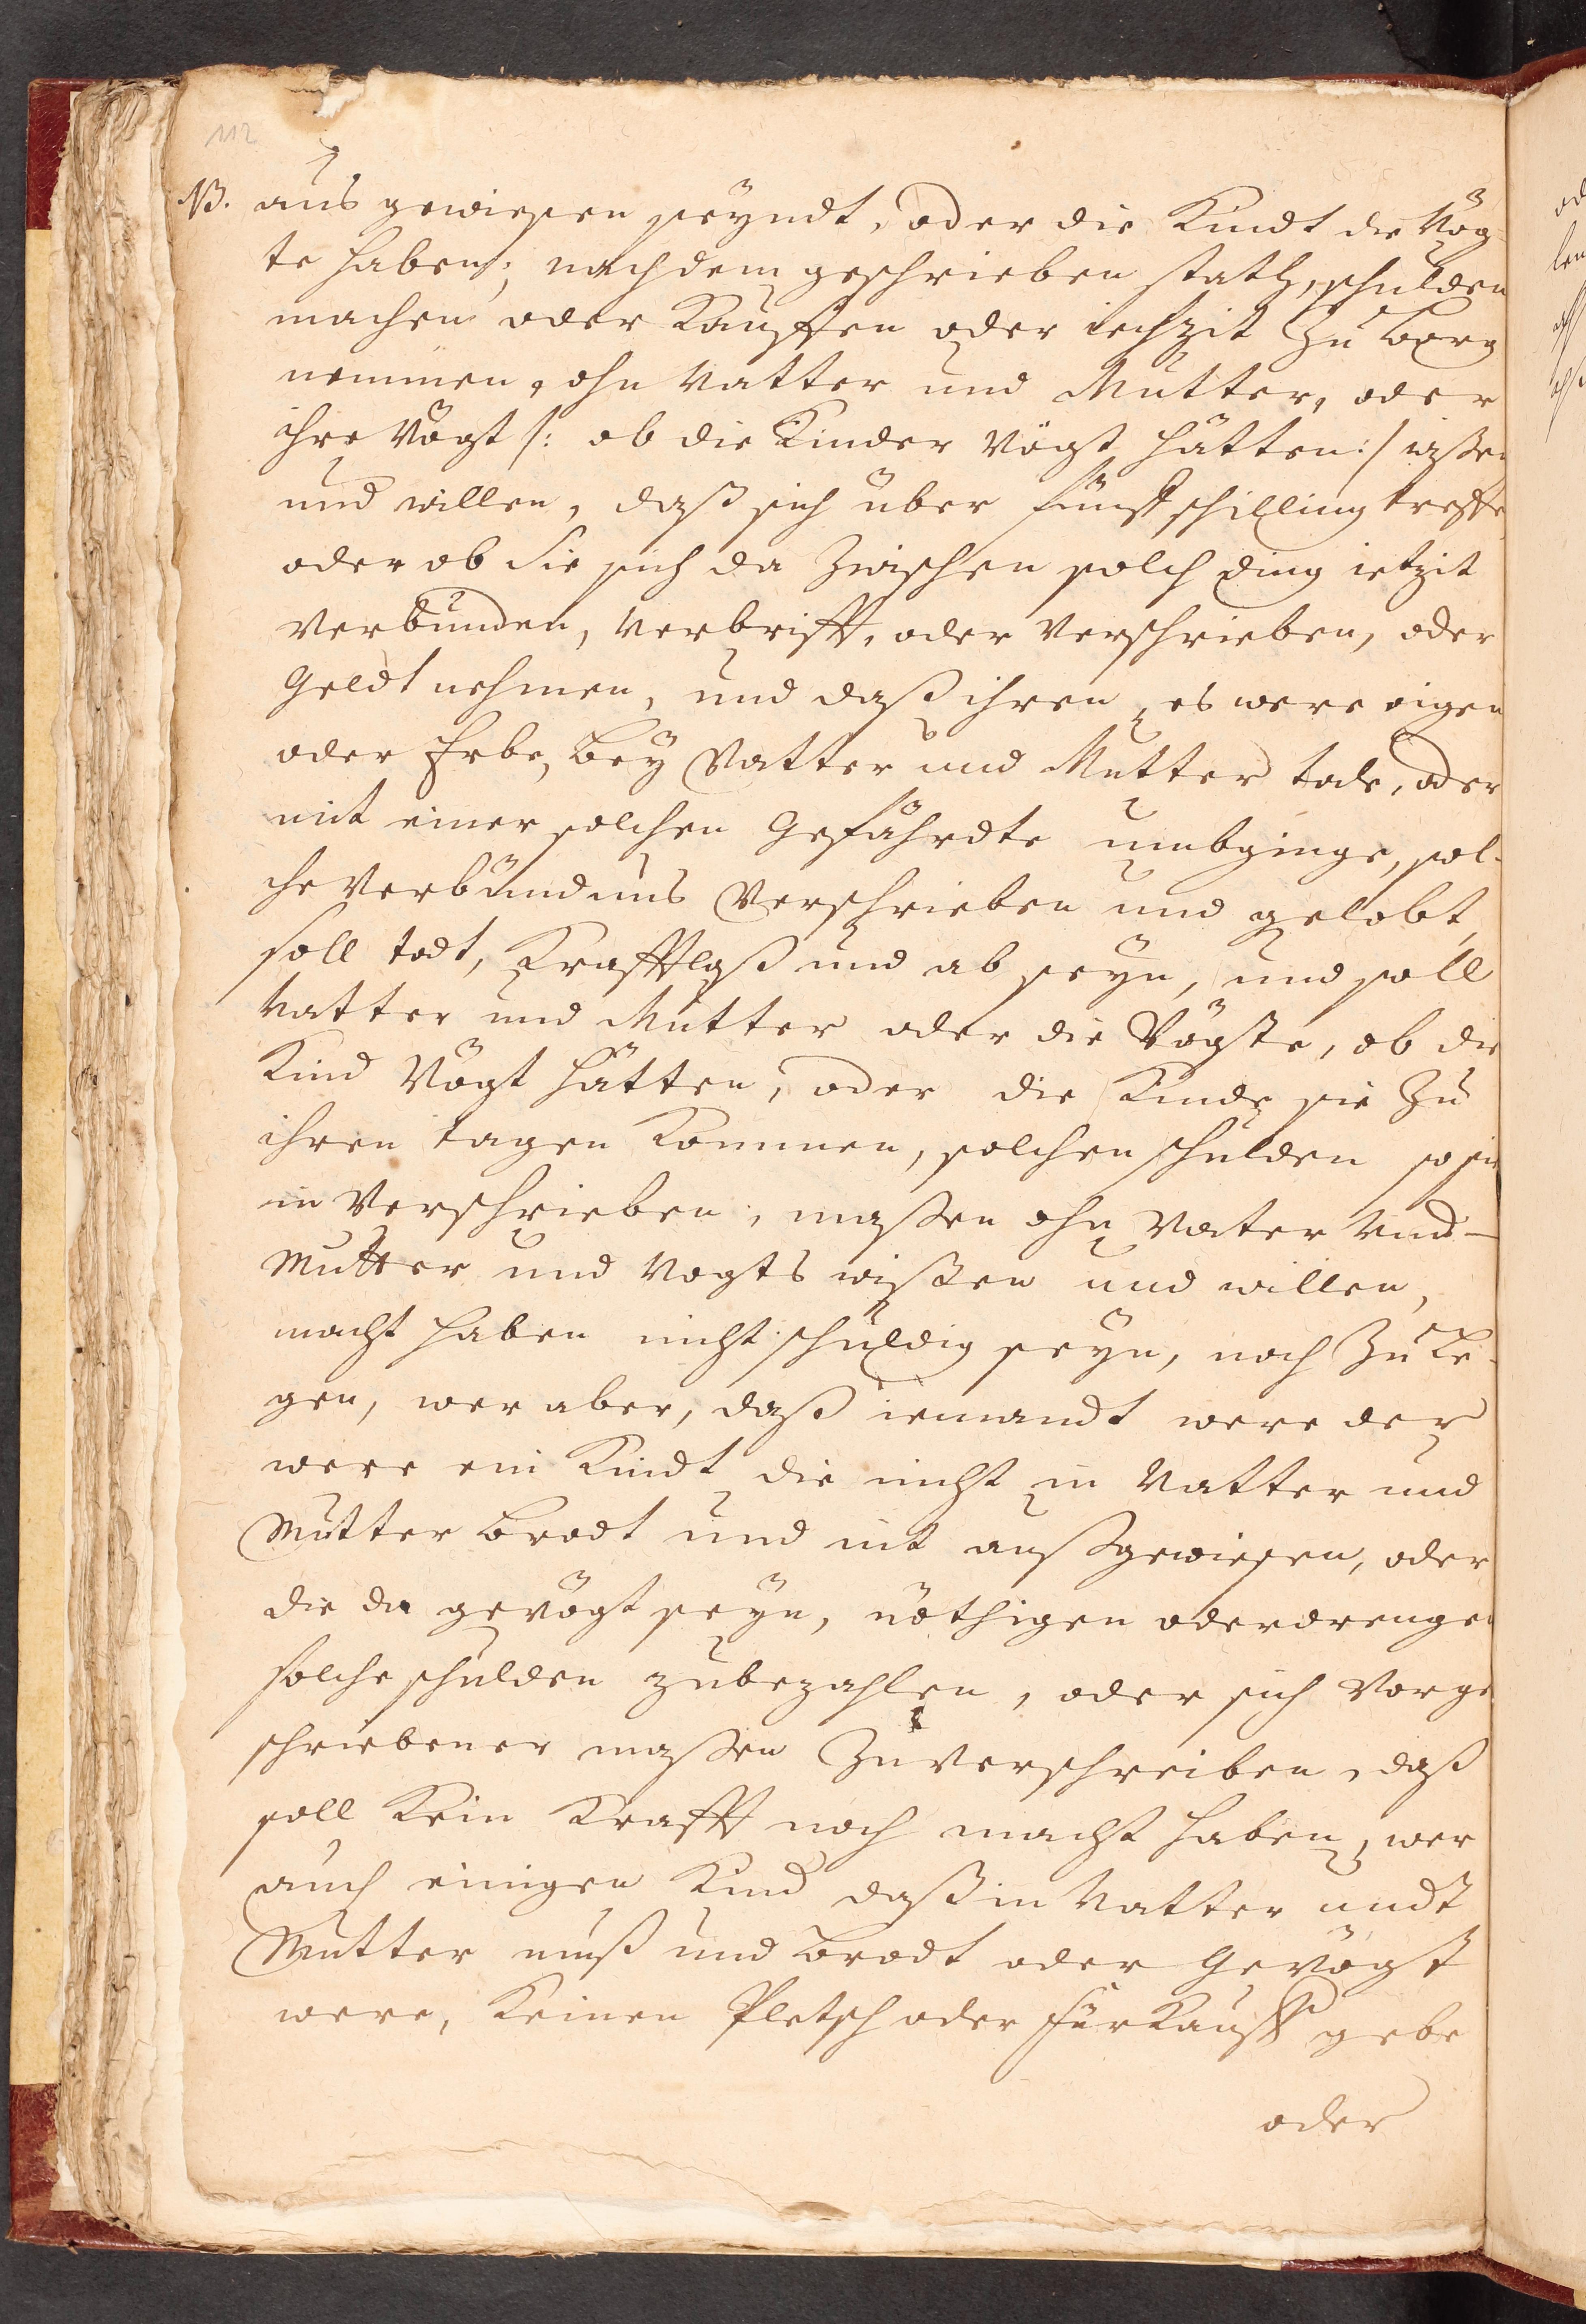 112
NB. aus gewiesen seyndt, oder die Kindt die Vög-
te haben; nachdem geschrieben stath, schulden
machen oder Kauffen oder iechzit Zu borg
nemmen, ohn Vatter und Mutter, oder
ihre Vögt /: ob die Kinder Vögt hätten:/ wißen
und willen, daß sich über fünff schilling treffe
oder ob Sie sich da Zwischen solch ding ietzit
Verbunden, Verbrifft, oder Verschrieben, oder
Geldt nehmen, und daß ihren, es were eigen
oder Erbe, bey Vatter und Mutter tode, oder
mit einer solchen Gefährdte umbginge, sol-
che Verbündnus Verschrieben und gelobt,
soll todt, Krafftloß und ab seyn, und soll
Vatter und Mutter oder die Vögte, ob die
Kind Vögt hätten, oder die Kinde sie Zu
ihren tagen Kommen, solchen schulden so sie
in Verschrieben, maßen ohn Vater Und
Mutter und Vogts wißen und willen,
macht haben nicht schuldig seyn, noch Zu le-
gen, wer aber, daß iemandt were der
were ein Kindt die nicht in Vatter und
Mutter brodt und nit außgewiesen, oder
die da gevögt seyn, nöthigen oder drengen
solche schulden zubezahlen, oder sich Vorge
schriebener maßen Zu verschreiben, daß
soll Kein Krafft noch macht haben, wer
auch einigen Kind daß in Vatter undt
Mutter muß und brodt oder Gevögt
were, Keinen Pletsch oder fürKauff gebe
oder